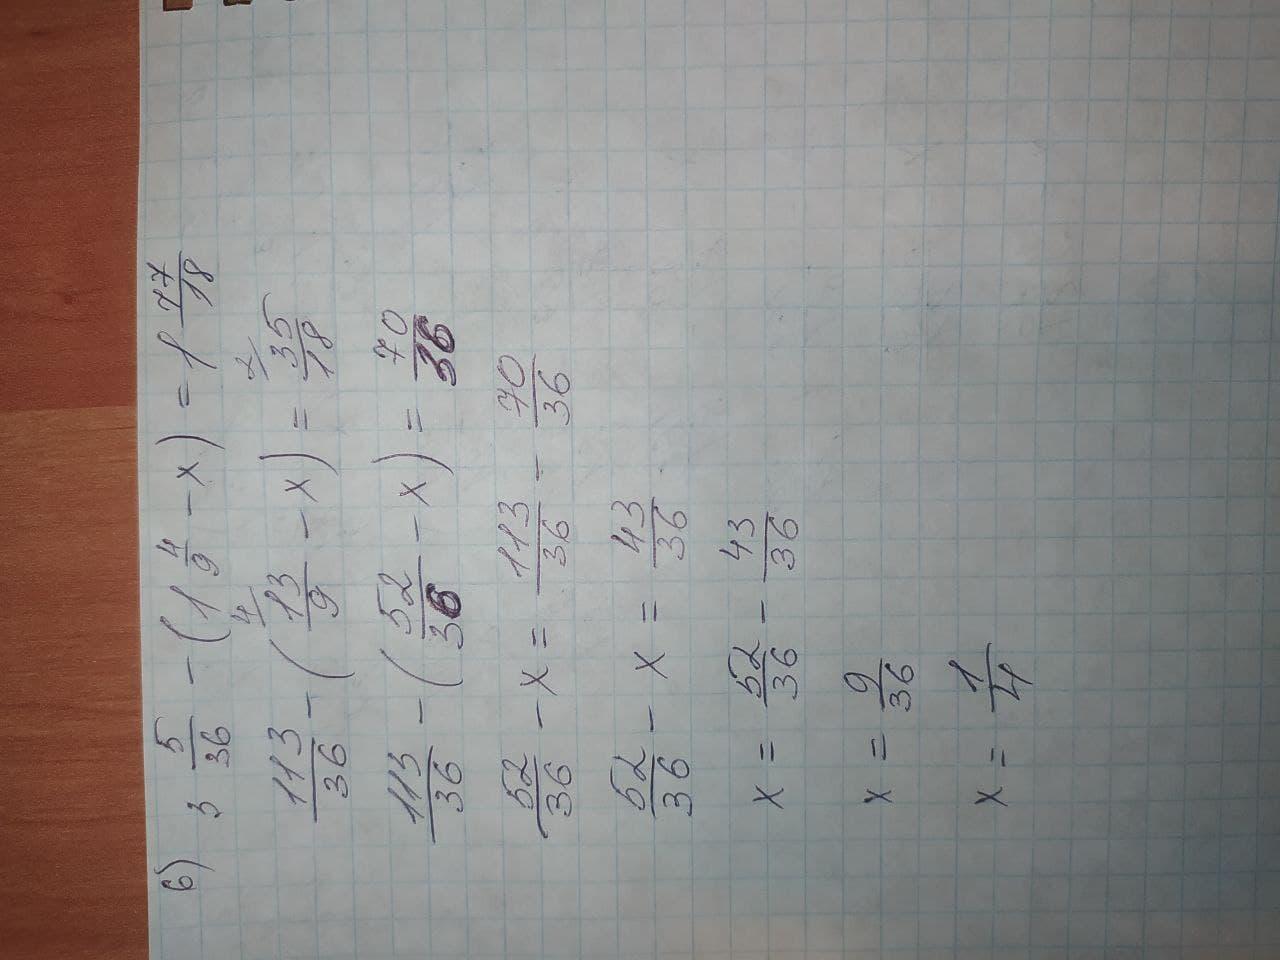 б) 3 5/36 - (1 4/9 - x) = 1 17/18
113/36 - (13/9 4/ - x) = 35/18 2/
113/36 - (52/36 - x) = 70/36
52/36 - x = 113/36 - 70/36
52/36 - x = 43/36
x = 52/36 - 43/36
x = 9/36
x = 1/4